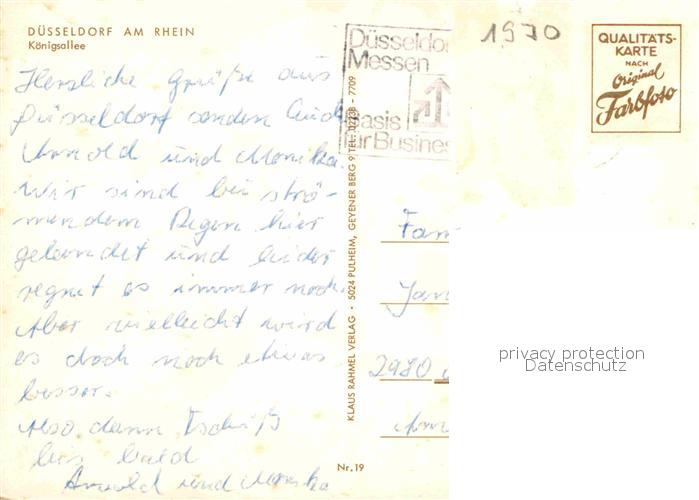 DÜSSELDORF AM RHEIN
Königsallee
Herzliche Grüße aus
Düsseldorf senden Euch
Arnold und Monika.
Wir sind bei strö-
mendem Regen hier
gelandet und leider
regnet es immer noch.
Aber vielleicht wird
es doch noch etwas
besser.
Also dann Tschüß
bis bald
Arnold und Monika
Düsseldor
Messen
Basis
für Business
1970
QUALITÄTS-
KARTE
NACH
Original
Farbfoto
KLAUS RAHMEL VERLAG · 5024 PULHEIM, GEYENER BERG 9 TEL. 02238 - 7709
Nr. 19
Fam
Jan
2980
privacy protection
Datenschutz